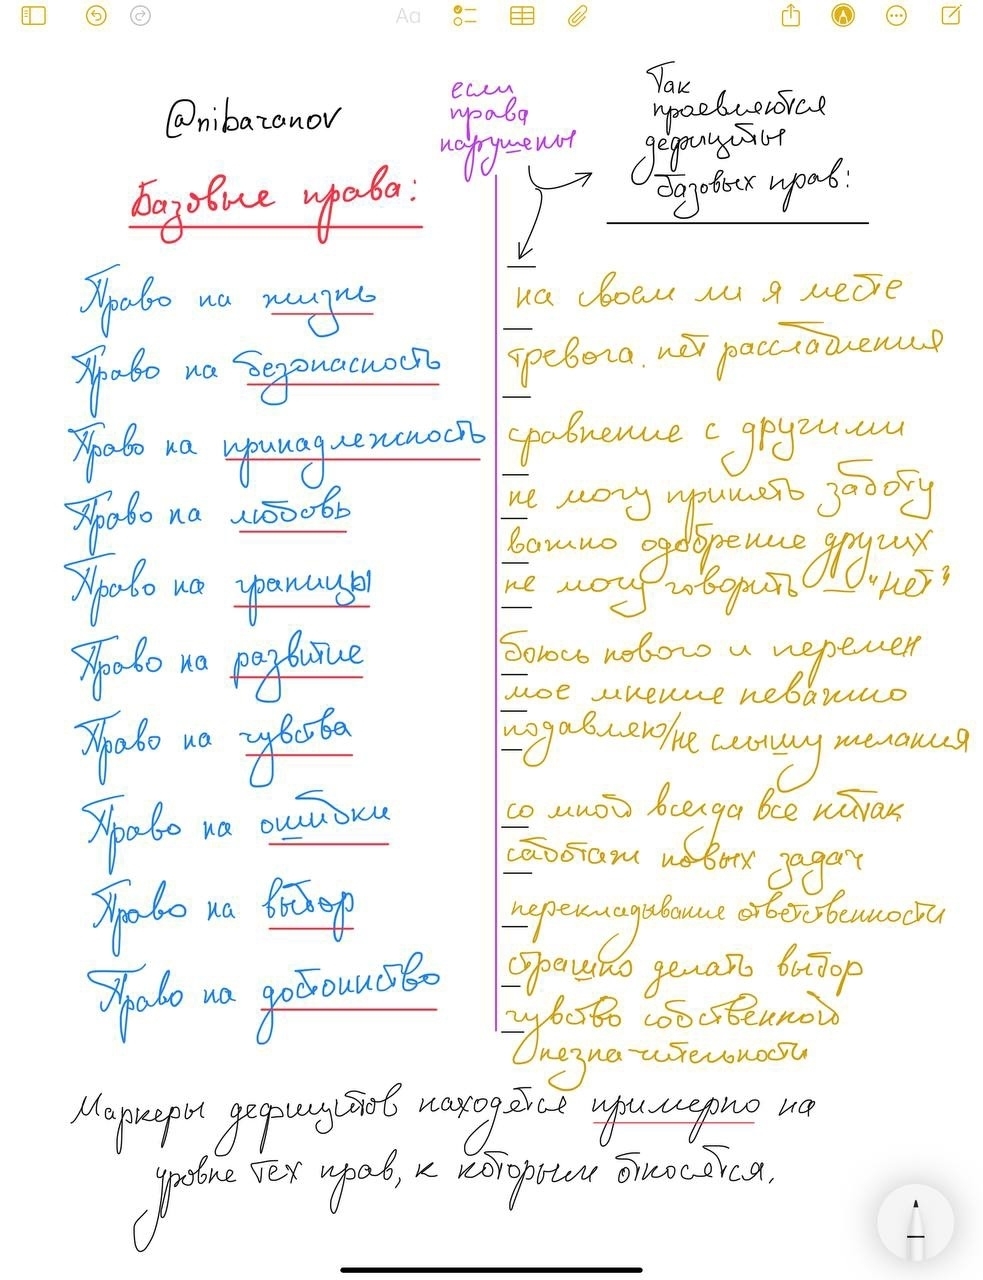 Aa
@nibaranov
если
права
нарушены
Так
проявляются
дефициты
базовых прав:
Базовые права:
Право на жизнь
Право на безопасность
Право на принадлежность
Право на любовь
Право на границы
Право на развитие
Право на чувства
Право на ошибки
Право на выбор
Право на достоинство
на своем ли я месте
тревога. нет расслабления
сравнение с другими
не могу принять заботу
важно одобрение других
не могу говорить "нет"
боюсь нового и перемен
мое мнение неважно
подавляю/не слышу желания
со мной всегда все нетак
саботаж новых задач
перекладывание ответственности
страшно делать выбор
чувство собственной
незначительности
Маркеры дефицитов находятся примерно на
уровне тех прав, к которым относятся.